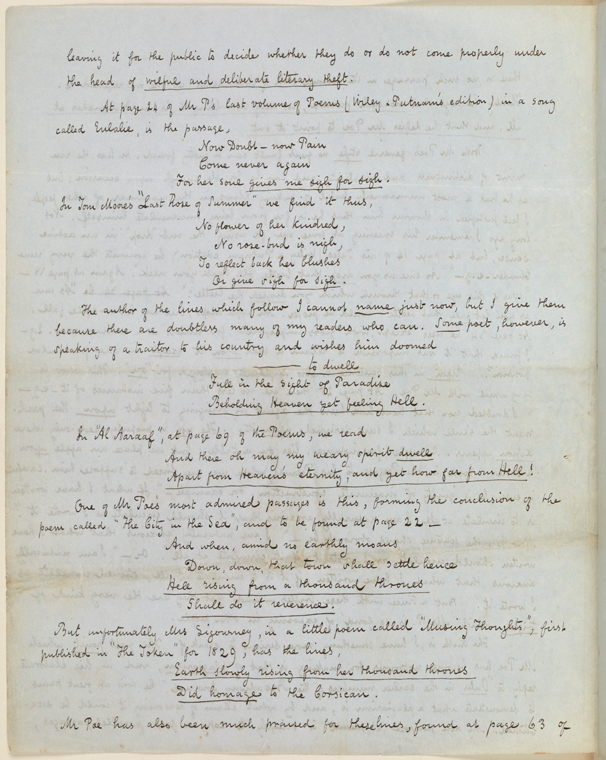 leaving it for the public to decide whether they do or do not come properly under
the head of wilful and deliberate literary theft.
At page 24 of Mr P's last volume of Poems (Wiley & Putnam's edition) in a song
called Eulalie, is the passage,
Now Doubt — now Pain
Come never again
For her soul gives me sigh for sigh.
In Tom Moore's "Last Rose of Summer" we find it thus,
No flower of her kindred,
No rose-bud is nigh,
To reflect back her blushes
Or give sigh for sigh.
The author of the lines which follow I cannot name just now, but I give them
because there are doubtless many of my readers who can. Some poet, however, is
speaking of a traitor to his country and wishes him doomed
——— to dwell
Full in the sight of Paradise
Beholding Heaven yet feeling Hell.
In "Al Aaraaf", at page 69 of the Poems, we read
And there oh may my weary spirit dwell
Apart from Heaven's eternity, and yet how far from Hell!
One of Mr Poe's most admired passages is this, forming the conclusion of the
poem called "The City in the Sea, and to be found at page 22 —
And when, amid no earthly moans
Down, down, that town shall settle hence
Hell rising from a thousand thrones
Shall do it reverence.
But unfortunately Mrs Sigourney, in a little poem called "Musing Thoughts", first
published in "The Token" for 1829, has the lines,
Earth slowly rising from her thousand thrones
Did homage to the Corsican.
Mr Poe has also been much praised for these lines, found at page 63 of